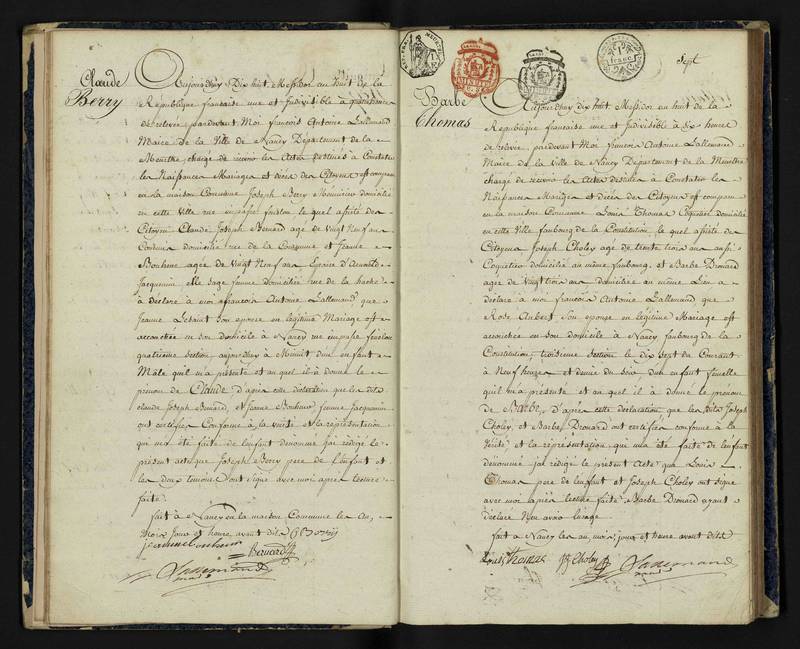 Claude
Berry
Aujourdhuy Dix huit Messidor an huit de la
République française une et Indivisible à quatre heure
de relevée pardevant Moi françois Antoine Lallemand
Maire de la Ville de Nancy Département de la
Meurthe chargé de recevoir les Actes destinés à Constater
les Naissances Mariages et décès des Citoyens est comparu
en la maison Commune Joseph Berry Menuisier domicilié
en cette Ville rue lequel assisté des
Citoyens Claude Joseph Bernard agé de Vingt Neuf ans
domicilié rue de la et Jeanne
Bonheur agée de Vingt Neuf ans Epouse d'
Jacquemin elle sage femme domiciliée rue de la hache
à déclaré à moi françois Antoine Lallemand que
Jeanne son épouse en légitime Mariage est
accouchée en son domicile à Nancy rue
quatrieme section aujourdhuy à Minuit d'un enfant
Mâle qu'il m'a présenté et auquel il a donné le
prénom de Claude d'après cette déclaration que les dits
claude Joseph Bernard, et Jeanne Bonheur femme Jacquemin
ont certifiée Conforme à la vérité et la représentation
qui m'a été faite de l'enfant denommé j'ai rédigé le
présent acte que Joseph Berry pere de l'enfant et
les deux témoins ont signé avec moi après lecture
faite.
fait à Nancy en la maison Commune les an,
Mois Jour et heure avant dits
jeanne bonheur
Bernard
Lallemand
maire
1 franc
Sept
Barbe
Thomas
Aujourdhuy dix huit Messidor an huit de la
République française une et Indivisible à Six heures
de relevée, pardevant Moi françois Antoine Lallemand
Maire de la Ville de Nancy Département de la Meurthe
chargé de recevoir les Actes destinés à Constater les
Naissances Mariages et Décès des Citoyens est comparu
en la maison Commune Louis Thomas Coquetier domicilié
en cette Ville faubourg de la Constitution, le quel assisté de
Citoyens Joseph Choley agé de trente trois ans aussi
Coquetier domicilié au même faubourg, et Barbe Drouard
agée de Vingt trois ans domiciliée au même Lieu a
déclaré à moi françois Antoine Lallemand que
Rose Aubert Son épouse en légitime Mariage est
accouchée en son domicile à Nancy faubourg de la
Constitution, troisieme Section le dix Sept du Courant
à Neuf heures et demie du soir d'un enfant femelle
quil m'a présenté et au quel il a donné le prénom
de Barbe, D'après cette déclaration que les dits Joseph
Choley, et Barbe Drouard ont certifiée conforme à la
Vérité et la représentation qui m'a été faite de l'enfant
dénommé j'ai rédigé le present Acte que Louis
Thomas pere de l'enfant et Joseph Choley ont signé
avec moi après lecture faite. Barbe Drouard ayant
déclaré N'en avoir l'usage
fait à Nancy les an mois, jour et heure avant dits
Louis Thomas J Choley Lallemand
maire